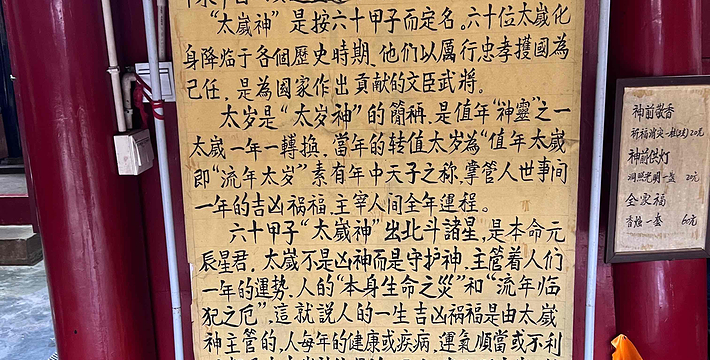 “太嵗神”是按六十甲子而定名。六十位太嵗化
身降临于各個歷史時期、他们以厲行忠孝護國為
己任，是為國家作出貢献的文臣武將。
太岁是“太岁神”的简称，是值年“神靈”之一
太嵗一年一轉换，當年的转值太岁為“值年太嵗
即“流年太岁”素有年中天子之称，掌管人世事间
一年的吉凶祸福，主宰人间全年運程。
六十甲子“太嵗神”出北斗諸星，是本命元
辰星君，太嵗不是凶神而是守护神，主管着人们
一年的運势，人的“本身生命之災”和“流年临
犯之厄”，這就説人的一生吉凶祸福是由太嵗
神主管的，人每年的健康或疾病，運氣順當或不利
神前敬香
神前供灯
20元
全家福
香烛一套 60元